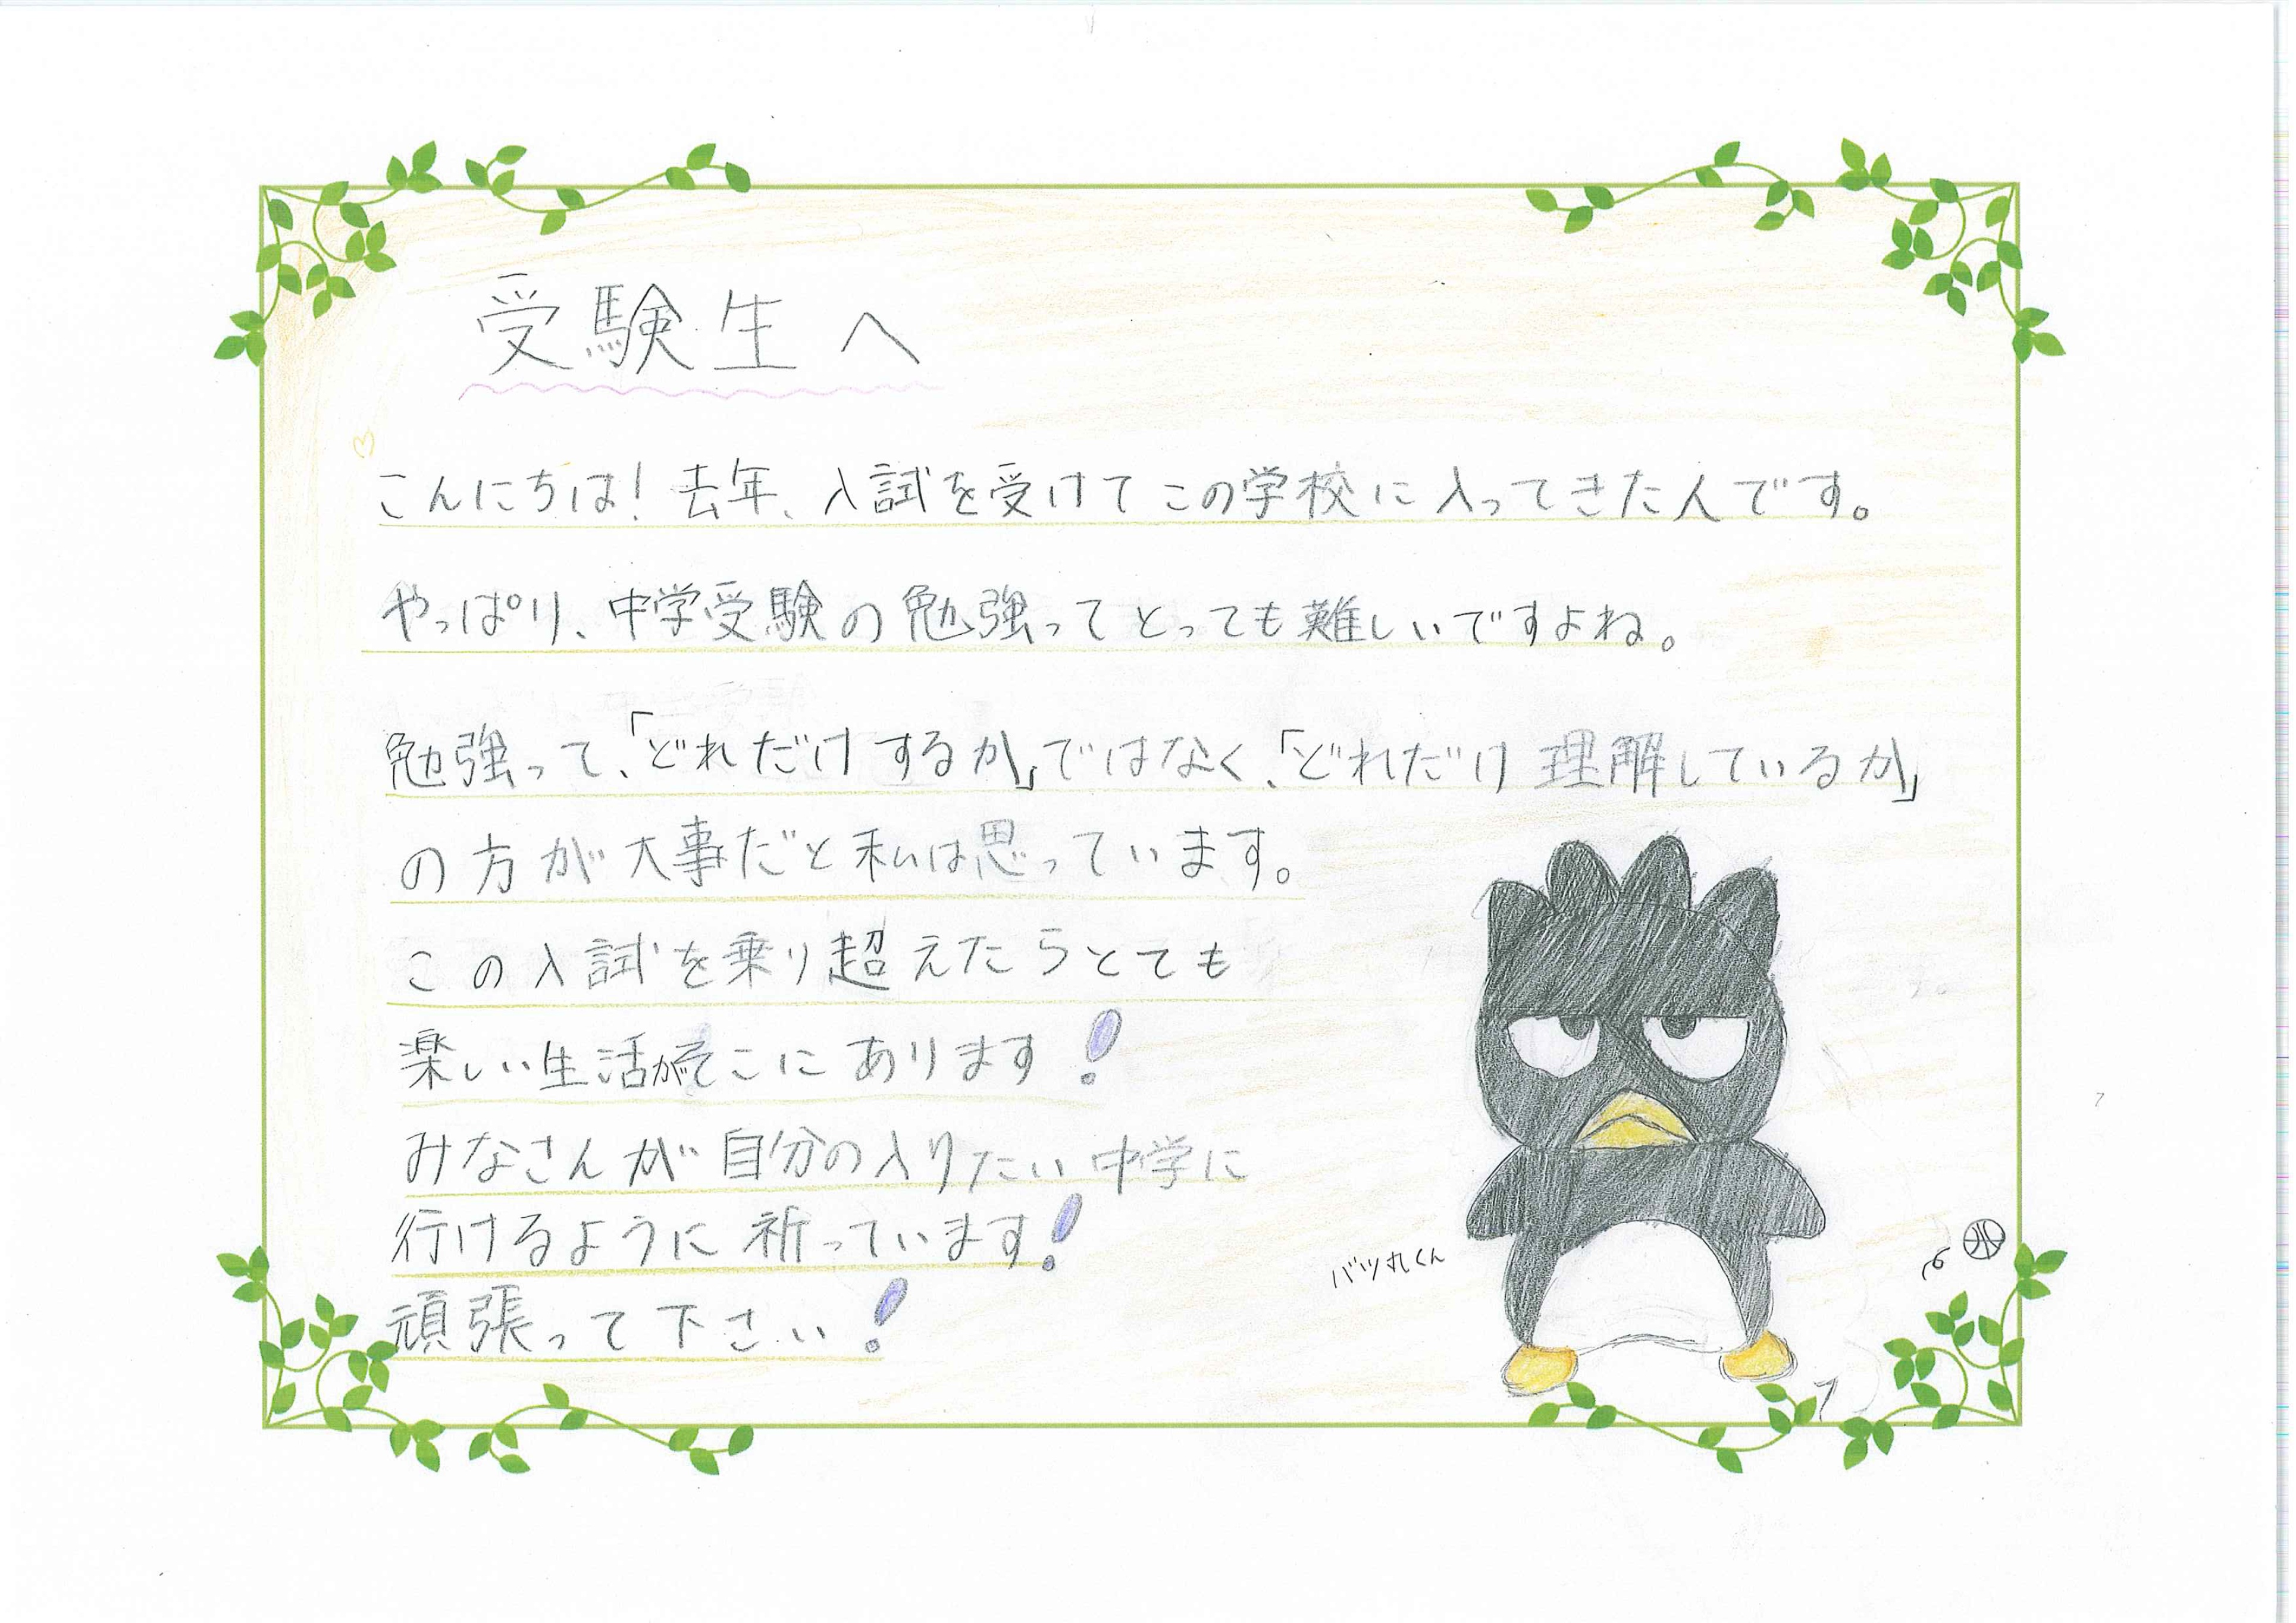 受験生へ
こんにちは！去年、入試を受けてこの学校に入ってきた人です。
やっぱり、中学受験の勉強ってとっても難しいですよね。
勉強って、「どれだけするか」ではなく、「どれだけ理解しているか」
の方が大事だと私は思っています。
この入試を乗り超えたらとても
楽しい生活がそこにあります！
みなさんが自分の入りたい中学に
行けるように祈っています！
頑張って下さい！
バツ丸くん